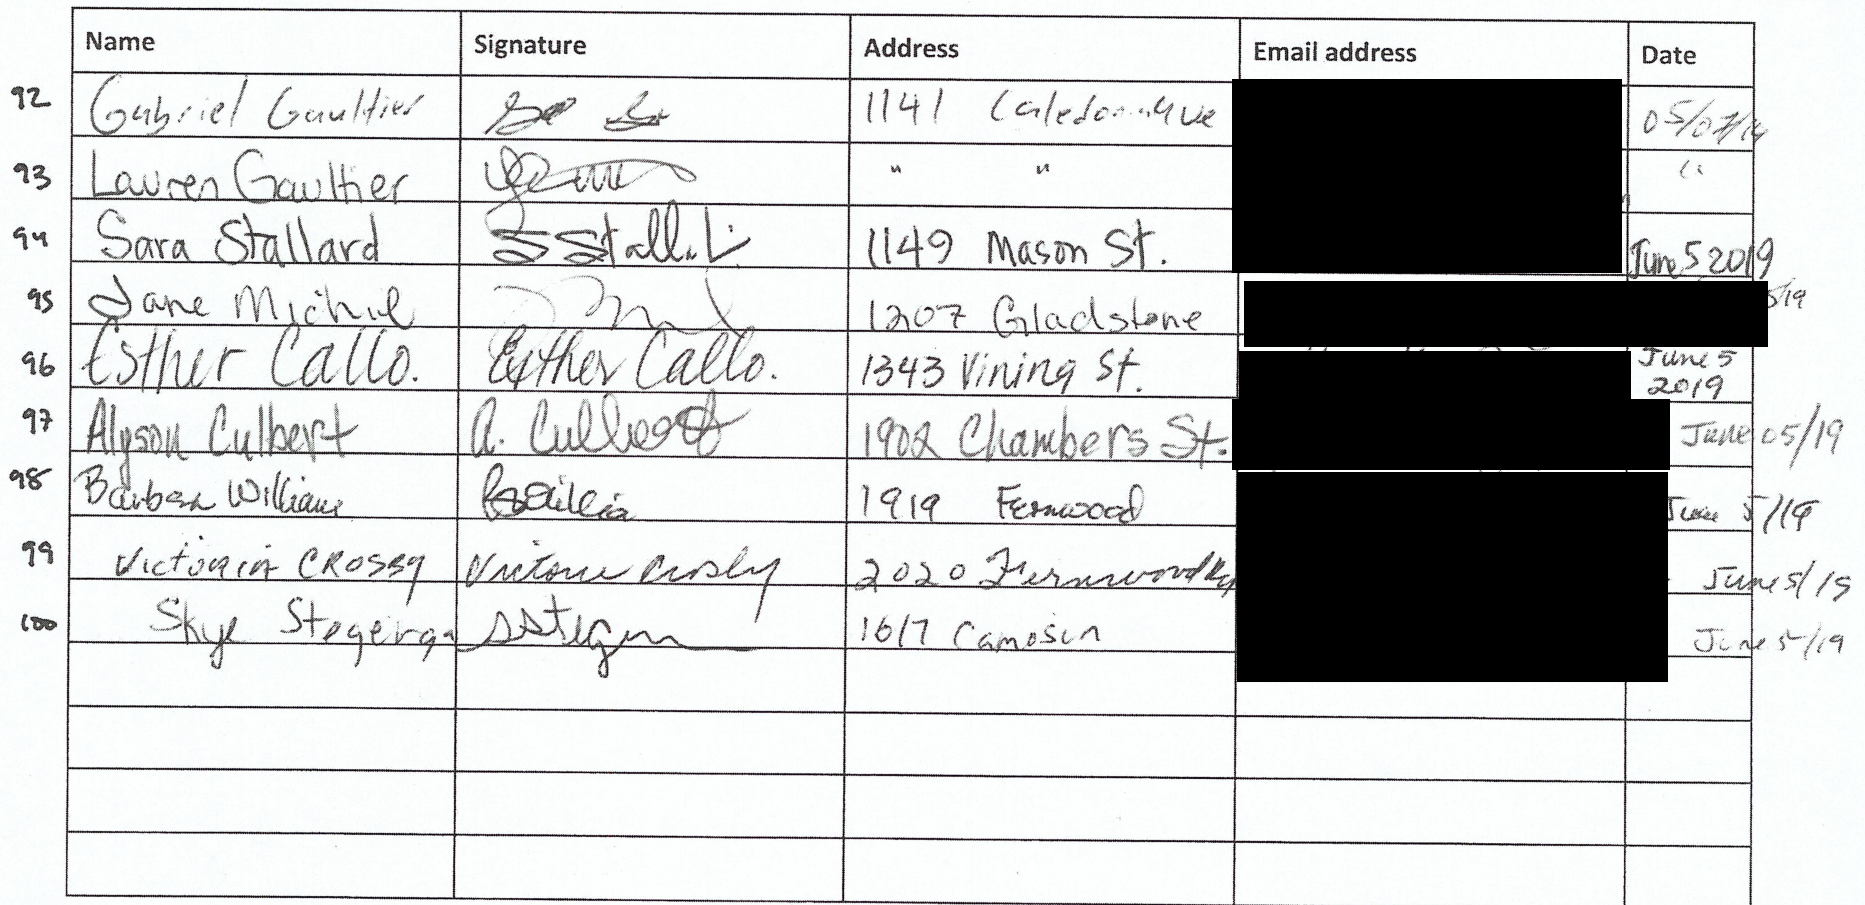 Name Signature Address Email address Date
92 Gabriel Gaultier 1141 Caledonia Ave
93 Lauren Gaultier " " "
94 Sara Stallard S Stall 1149 Mason St. June 5 2019
95 Jane 1207 Gladstone 5/19
96 Esther Callo. Esther Callo. 1343 Vining St. June 5 2019
97 Alyson Culbert A. Culbert 1902 Chambers St. June 05/19
98 Barbara Williams 1919 Fernwood June 5/19
99 Victoria CROSBY Victoria Crosby 2020 Fernwood Rd June 5/19
100 Skye 1617 Camosun June 5/19